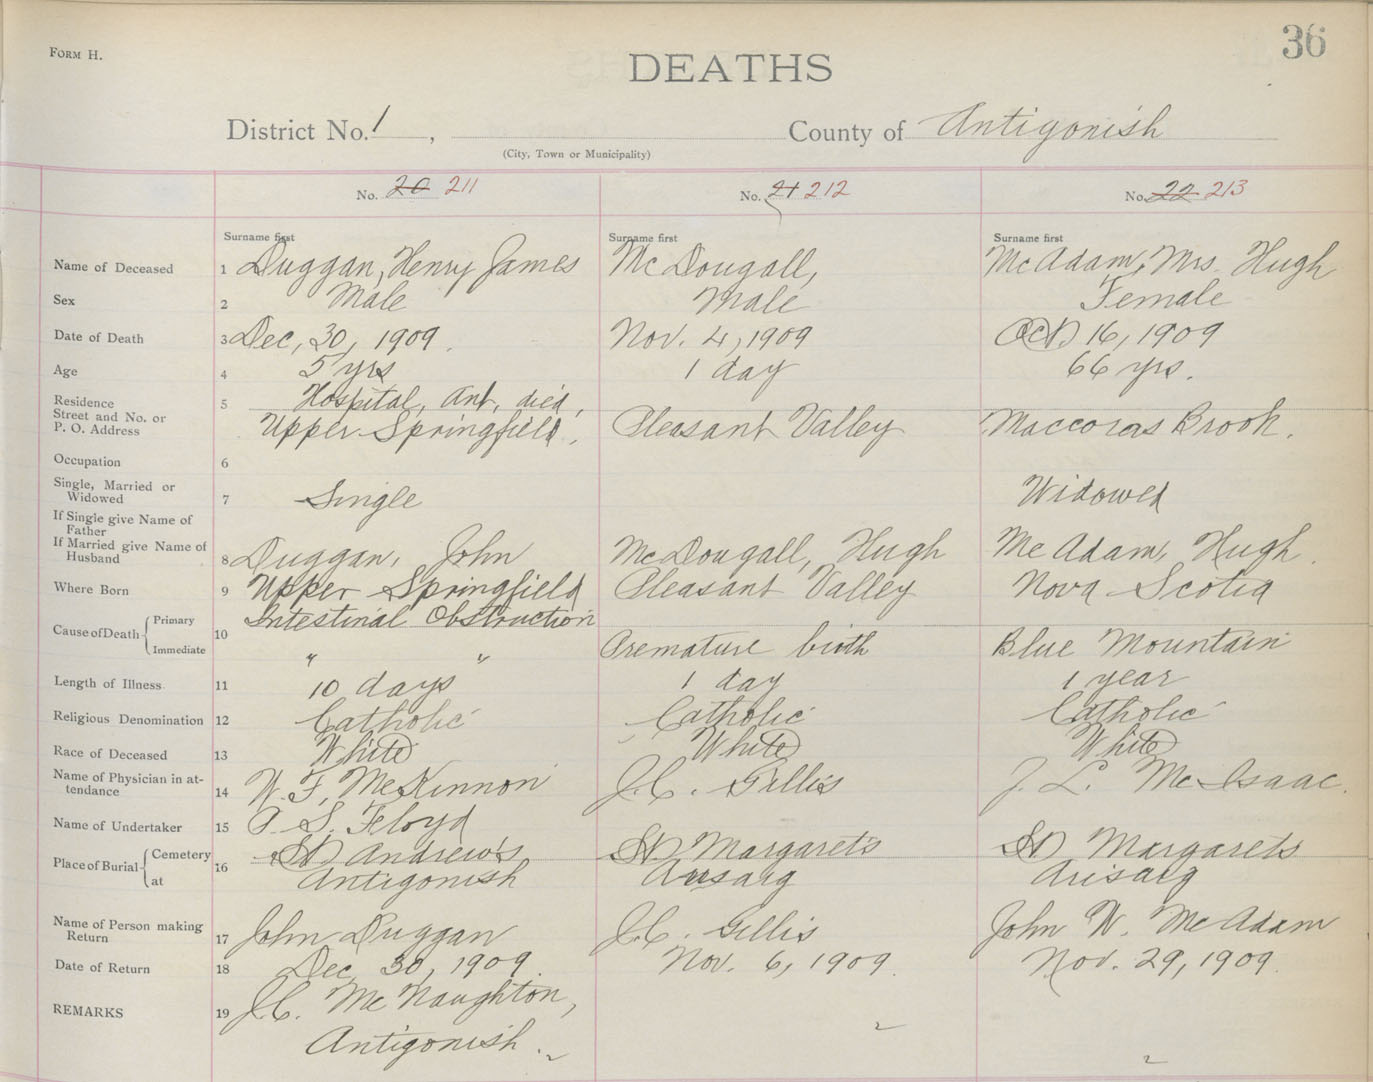 36
FORM H.
DEATHS
District No. 1 , County of Antigonish
(City, Town or Municipality)
No. 20 211 No. 21 212 No. 22 213
Surname first Surname first Surname first
Name of Deceased 1 Duggan, Henry James McDougall, McAdam, Mrs. Hugh
Sex 2 Male Male Female
Date of Death 3 Dec, 30, 1909. Nov. 4, 1909 Oct 16, 1909
Age 4 5 yrs 1 day 66 yrs.
Residence 5 Hospital, Ant, died,
Street and No. or
P. O. Address Upper Springfield, Pleasant Valley Maccoras Brook.
Occupation 6
Single, Married or
Widowed 7 Single Widowed
If Single give Name of
Father
If Married give Name of
Husband 8 Duggan, John McDougall, Hugh McAdam, Hugh.
Where Born 9 Upper Springfield Pleasant Valley Nova Scotia
Cause of Death Primary 10 Intestinal Obstruction
Immediate " " Premature birth Blue Mountain
Length of Illness 11 10 days 1 day 1 year
Religious Denomination 12 Catholic Catholic Catholic
Race of Deceased 13 White White White
Name of Physician in at-
tendance 14 W. F. McKinnon J. C. Gillis J. L. McIsaac.
Name of Undertaker 15 P. S. Floyd
Place of Burial Cemetery 16 St Andrew's St Margarets St Margarets
at Antigonish Arisaig Arisaig
Name of Person making
Return 17 John Duggan J. C. Gillis John W. McAdam
Date of Return 18 Dec 30, 1909. Nov. 6, 1909. Nov. 29, 1909.
REMARKS 19 J. C. McNaughton,
Antigonish.